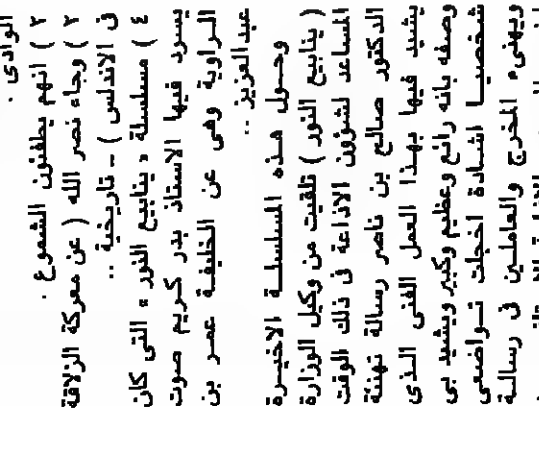 الوادى .
٢ ) انهم يطفئون الشموع .
٣ ) وجاء نصر الله ( عن معركة الزلاقة
فى الاندلس ) - تاريخية ..
٤ ) مسلسلة « ينابيع النور » التى كان
يسرد فيها الاستاذ بدر كريم صوت
الراوية وهى عن الخليفة عمر بن
عبد العزيز ..
وحول هذه المسلسلة الاخيرة
( ينابيع النور ) تلقيت من وكيل الوزارة
المساعد لشؤون الاذاعة فى ذلك الوقت
الدكتور صالح بن ناصر رسالة تهنئة
يشيد فيها بهذا العمل الفنى الذى
وصفه بانه رائع وعظيم وكبير ويشيد بى
شخصيا اشادة اخجلت تواضعى
ويهنىء المخرج والعاملين فى رسالة